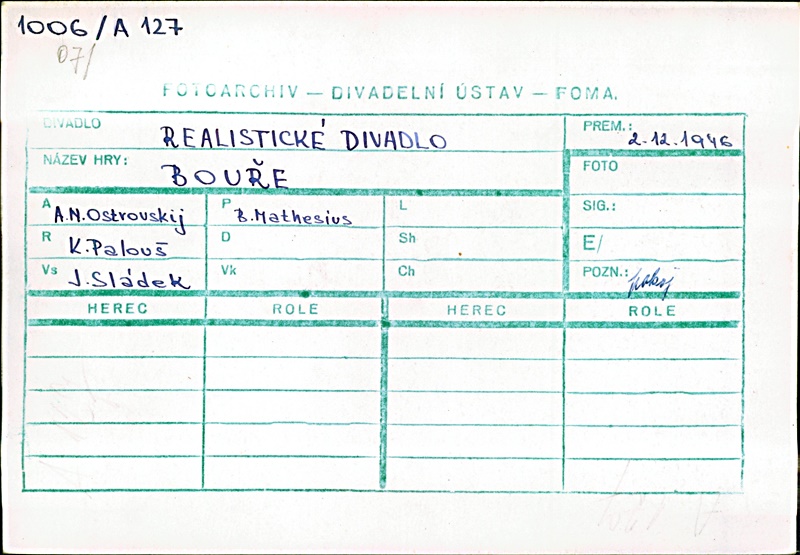 1006/A 127
07/
FOTOARCHIV — DIVADELNÍ ÚSTAV — FOMA.
DIVADLO REALISTICKÉ DIVADLO PREM.: 2.12.1946
NÁZEV HRY: BOUŘE FOTO
A A.N.Ostrovskij P B.Mathesius L SIG.:
R K.Palouš D Sh E/
Vs J.Sládek Vk Ch POZN.:
HEREC ROLE HEREC ROLE